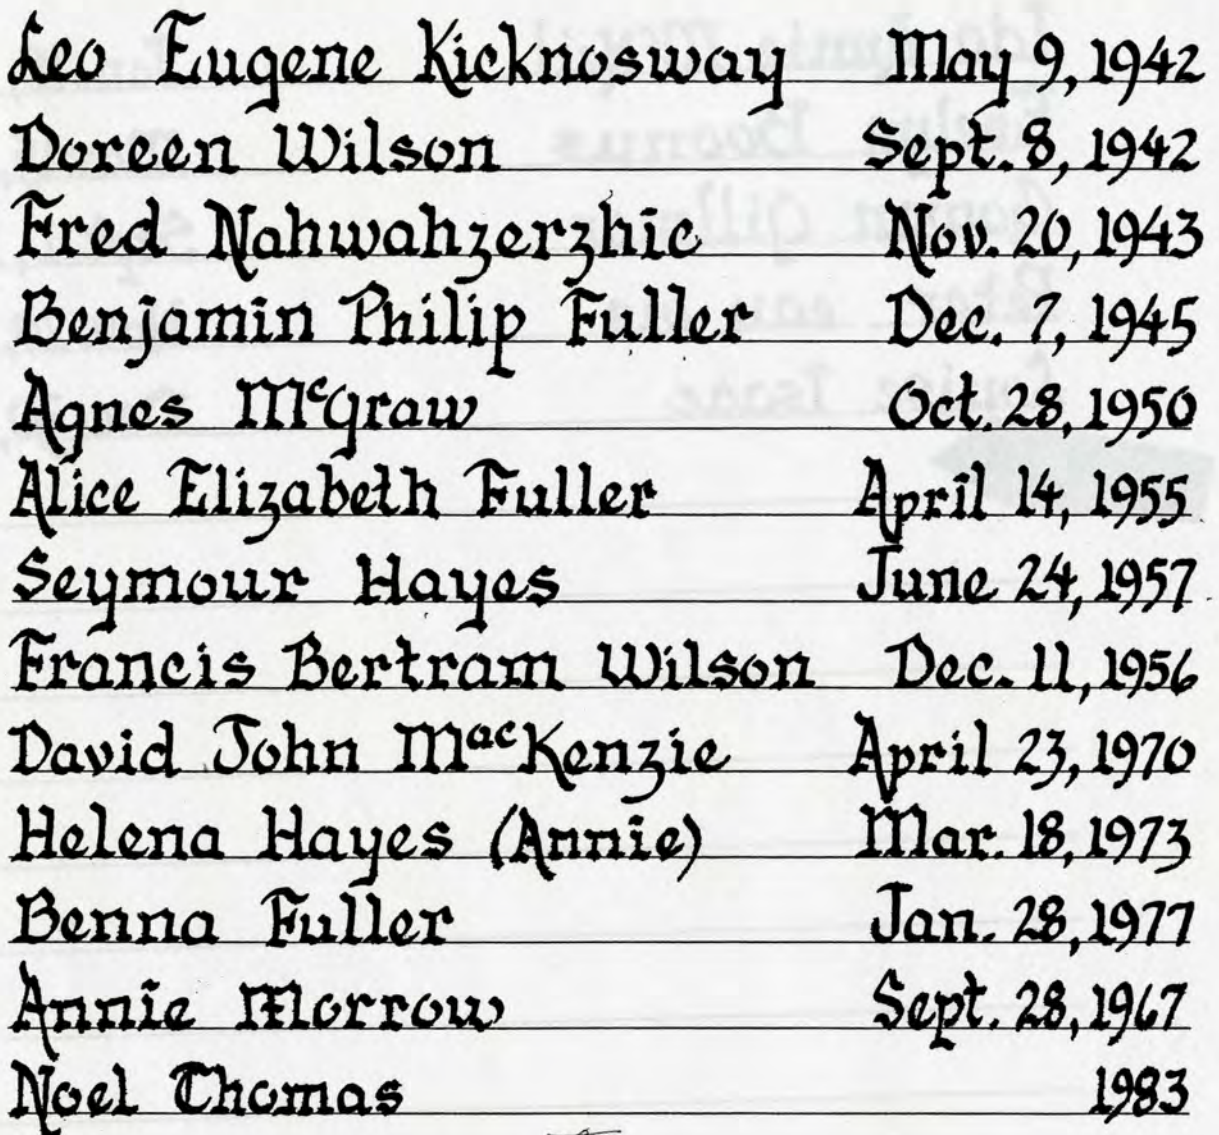 Leo Eugene Kicknosway May 9, 1942
Doreen Wilson Sept. 8, 1942
Fred Nahwahzerzhic Nov. 20, 1943
Benjamin Philip Fuller Dec. 7, 1945
Agnes McGraw Oct. 28, 1950
Alice Elizabeth Fuller April 14, 1955
Seymour Hayes June 24, 1957
Francis Bertram Wilson Dec. 11, 1956
David John MacKenzie April 23, 1970
Helena Hayes (Annie) Mar. 18, 1973
Benna Fuller Jan. 28, 1977
Annie Morrow Sept. 28, 1967
Noel Thomas 1983